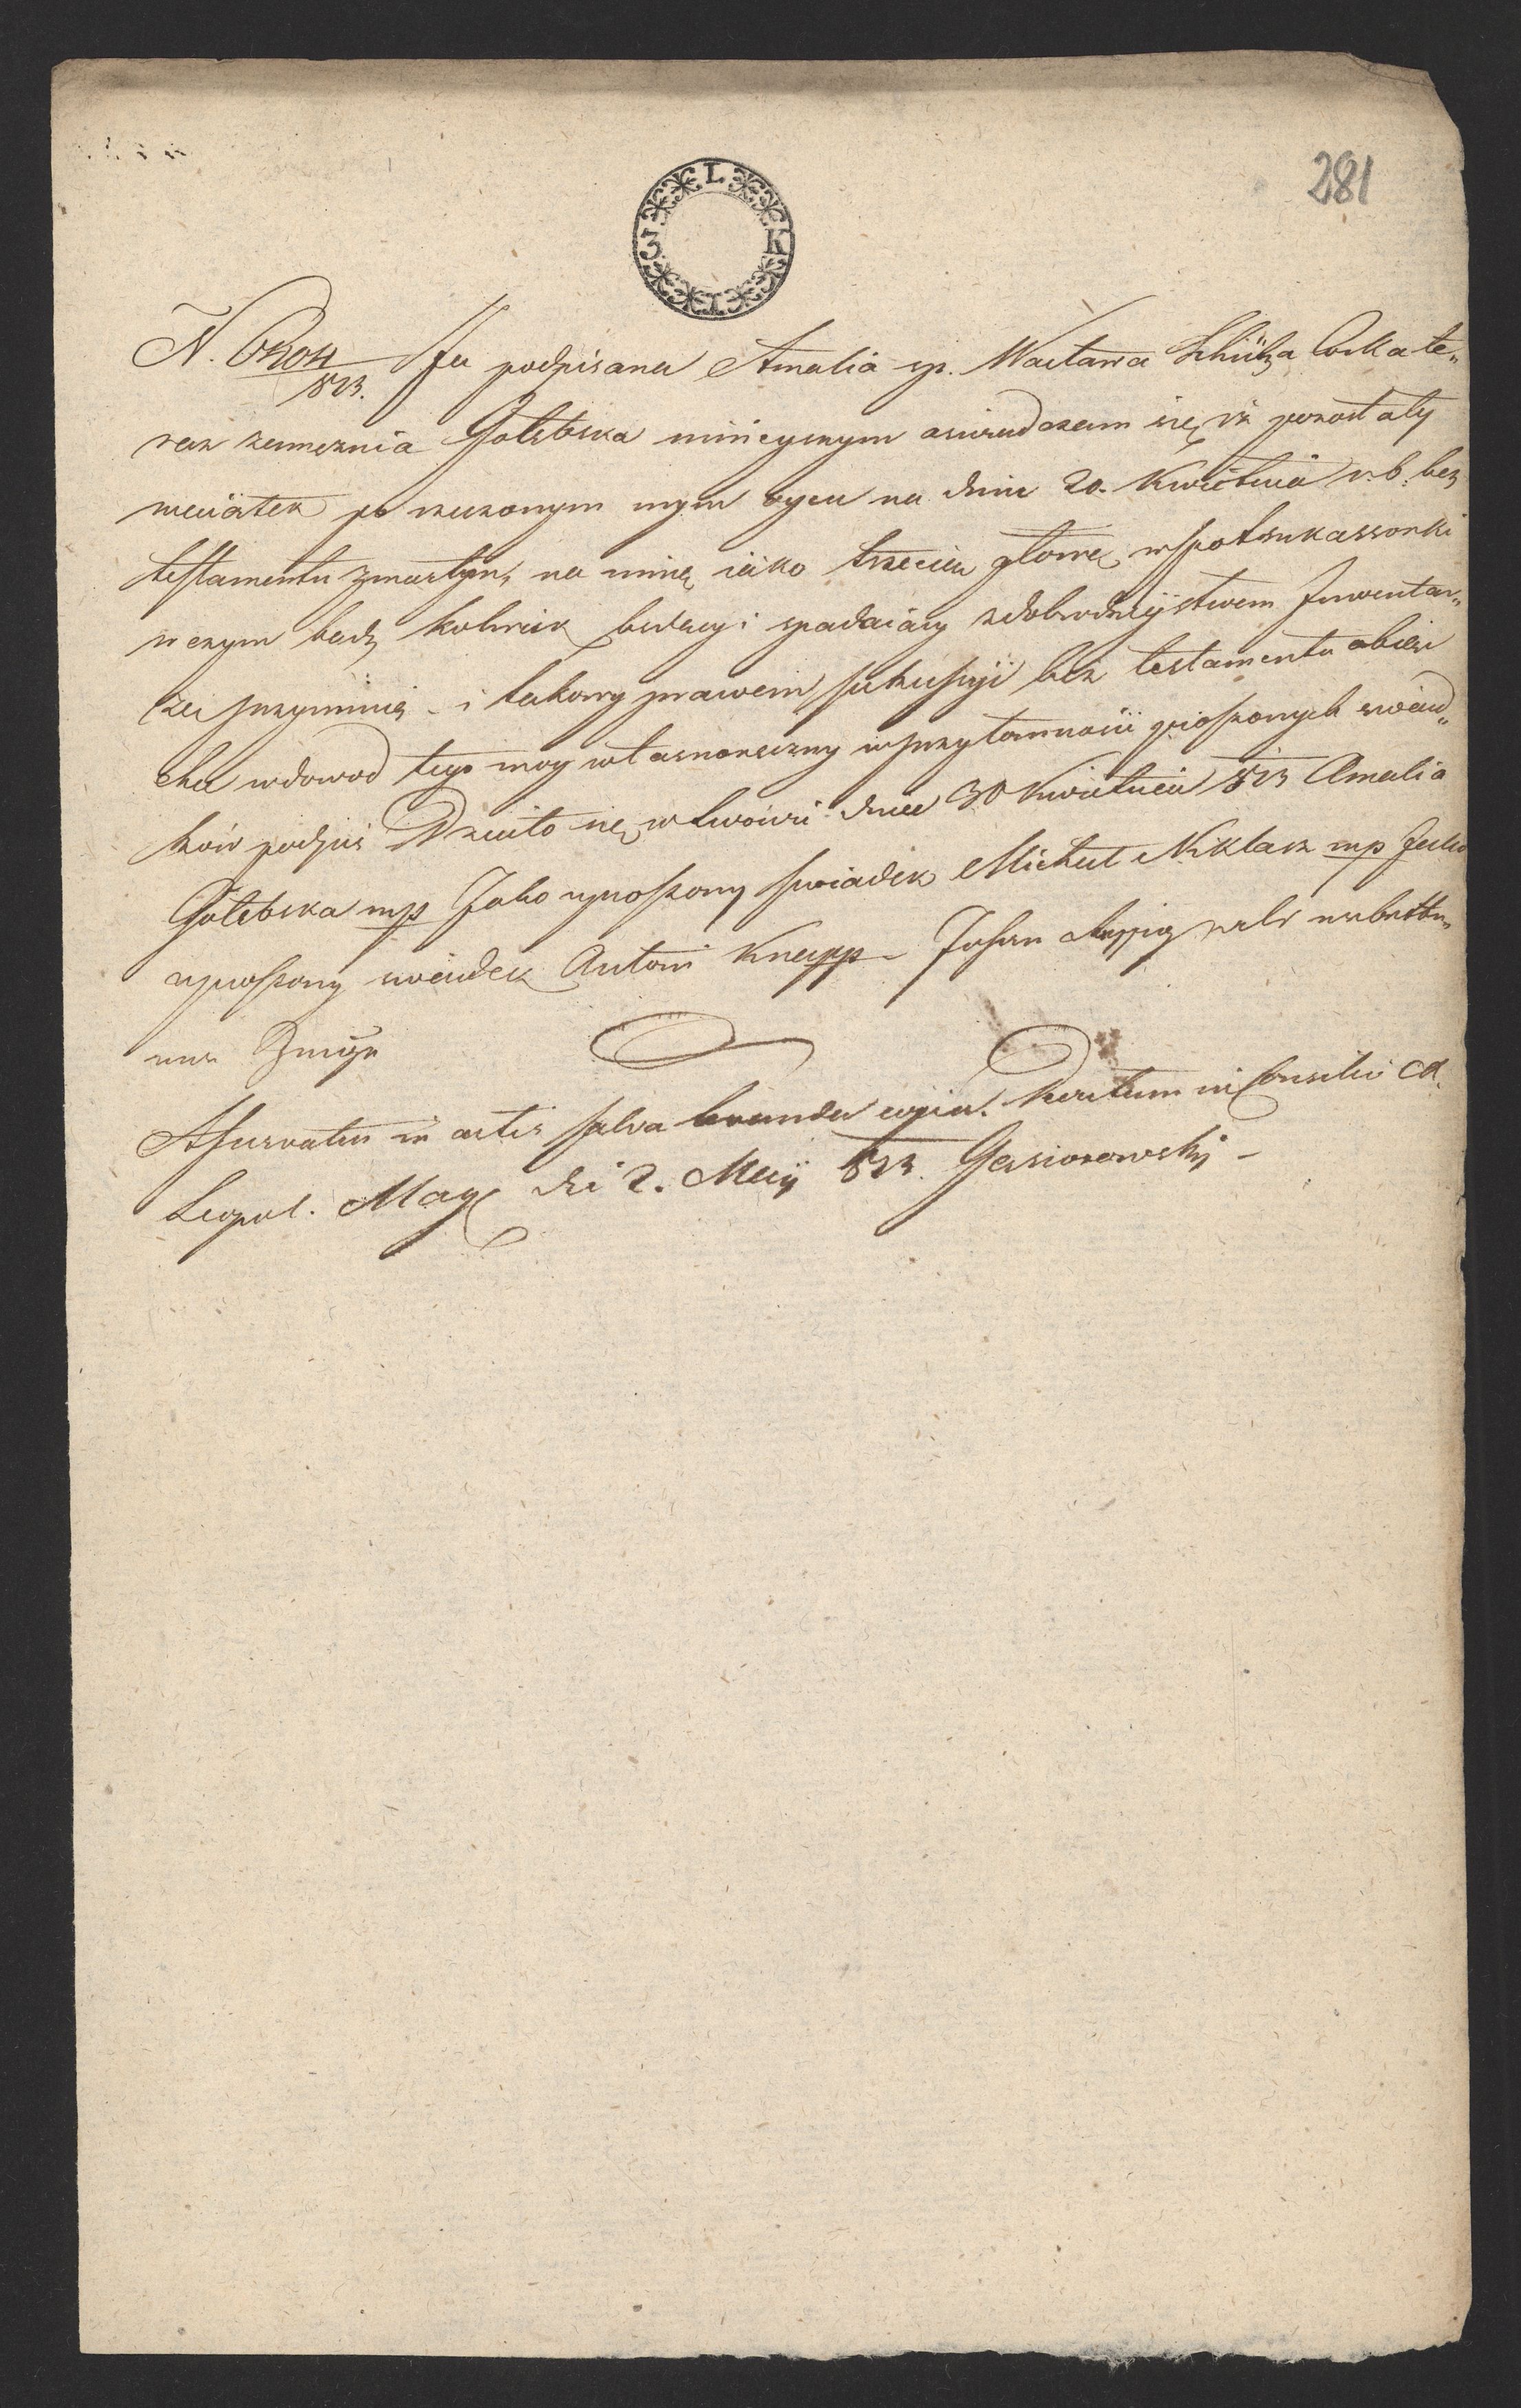 281
L
3 K
I
N. 6304/823. Ja podpisana Amalia śp. Wacława Schütza Corka te„
raz zamęzna Gołebska ninieyszym oswiadczam się, iż pozostały
maiątek po rzeczonym mym oycu na dniu 20. Kwietnia r. b. bez
testamentu zmarłym, na mnię iako trzecią głowę, wspołsukcessorki
w czym bądz kolwiek będący i spadaiący z dobrodzieystwem Inwentar„
za przyimuię i takowy prawem sukcessyi bez testamentu obiey
mę w dowod tego moy własnoręczny w przytomności uproszonych swiad„
kow podpis Działo się w Lwowie dnia 30 Kwietnia 823 Amalia
Gołebska mp Jako uproszony swiadek Michał Niklasz mp Jako
uproszony swiadek Antoni Knapp – Johan als erbettn„
ner Zeuge
Asservatur in actis salva levanda copia. Decretum in Consilio CR.
Leopol. Mag. die 2. Maij 823. Gąsiorowski –